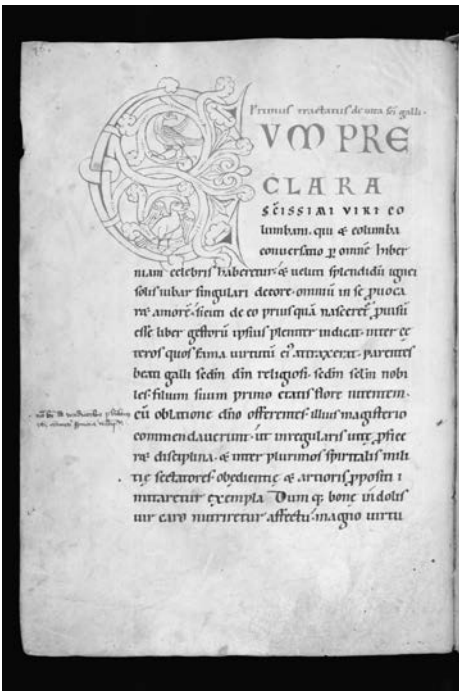 Primus tractatus de vita sci galli.
CUM PRE
CLARA
SCISSIMI VIRI CO
lumbani. qui & columba
conversatio p omne hiber
niam celebris haberetur. & veluti splendidu ignei
solis iubar singulari decore. omniu in se puoca
ret amore. sicuti de eo priusqua nasceret puisu
esse liber gestoru ipsius pleniter indicat. inter ce
teros quos fama virtutu ei attraxerat. parentes
beati galli sedm dm religiosi. sedm sclm nobi
les. filium suum primo etatis flore nitentem.
cu oblatione dno offerentes. illius magisterio
commendaverunt. ut in regularis vite pfice
ret disciplina. & inter plurimos spiritalis mili
tie sectatores. obedientie & artioris ppositi i
mitaretur exempla. Dum q; bone indolis
vir caro nutriretur affectu. magno virtu